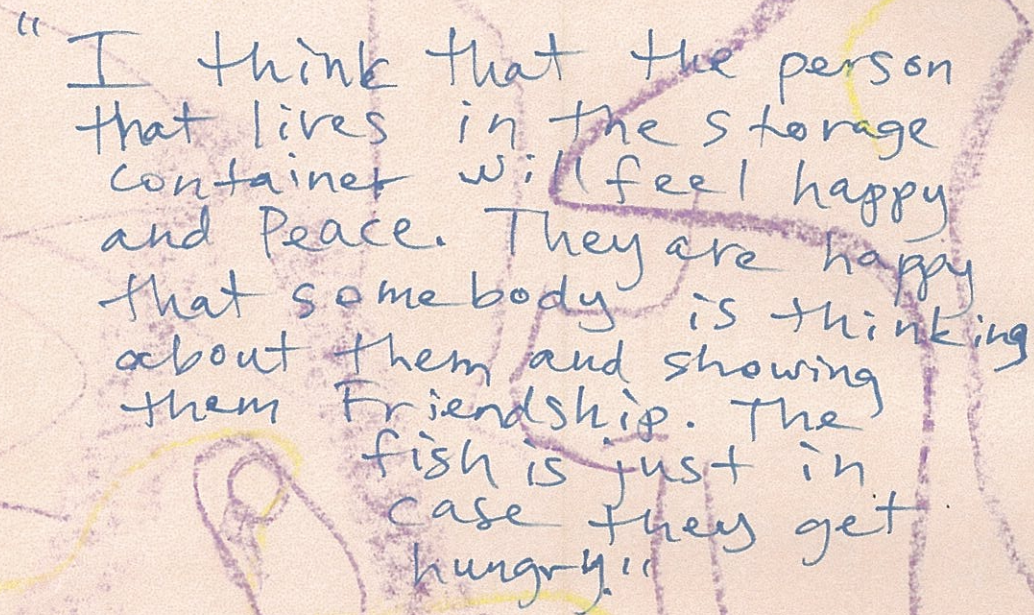 "I think that the person
that lives in the storage
container will feel happy
and Peace. They are happy
that somebody is thinking
about them and showing
them Friendship. The
fish is just in
case they get
hungry."